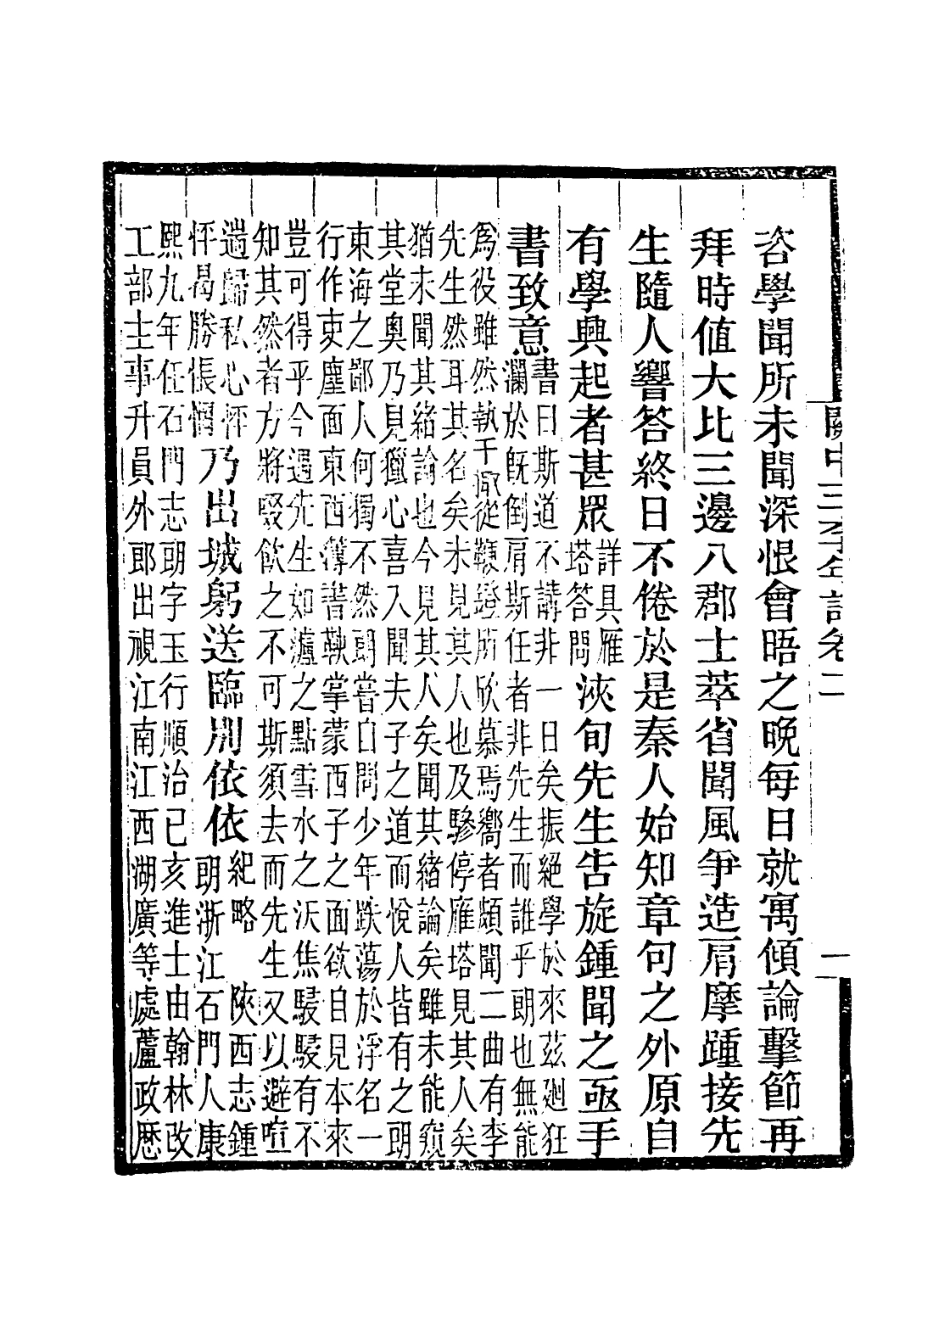 關中三李年譜卷二 一
咨學聞所未聞深恨會晤之晚每日就寓傾論擊節再
拜時值大比三邊八郡士萃省聞風爭造肩摩踵接先
生隨人響答終日不倦於是秦人始知章句之外原自
有學興起者甚眾詳具雁塔答問浹旬先生告旋鍾聞之亟手
書致意書曰斯道不講非一日矣振絕學於來茲廻狂
瀾於旣倒肩斯任者非先生而誰乎朗也無能
爲役雖然執千掫從鞭鐙所欣慕焉嚮者頗聞二曲有李
先生然耳其名矣未見其人也及驂停雁塔見其人矣
猶未聞其緒論也今見其人矣聞其緒論矣雖未能窺
其堂奧乃見獵心喜入聞夫子之道而悅人皆有之朗
東海之鄙人何獨不然朗嘗自問少年跌蕩於浮名一
行作吏塵面東西簿書鞅掌蒙西子之面欲自見本來
豈可得乎今遇先生如爐之點雪水之沃焦駸駸有不
知其然者方將飲之不可斯須去而先生又以避喧
遄歸私心怦怦曷勝悵惘乃出城躬送臨別依依紀略 陝西志鍾
朗浙江石門人康
熙九年任石門志朗字玉行順治己亥進士由翰林改
工部士事升員外郎出視江南江西湖廣等處蘆政歷